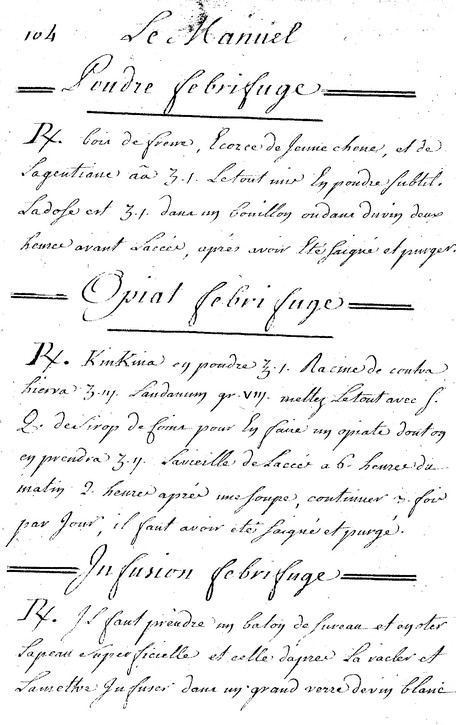 104 Le Manuel
Poudre febrifuge
Rx. bois de frene, Ecorce de Jeune chene, et de
Lagentiane aã ʒ.1. Letout mis En poudre subtil.
Ladose est ʒ.1. dans un bouillon oudans duvin deux
heures avant Laccés, aprés avoir Eté saigné et purger.
Opiat febrifuge
Rx. KinKina en poudre ʒ.1. Racine de contra
hierva ʒ.iij. Laudanum gr.viii. mellez Letout avec s.
Q. desirop de foins pour En faire un opiate dont on
en prendra ʒ.ij. Laveille de Laccés a 6. heures du
matin 2. heures aprés une soupe, continuer 2. fois
par Jour, il faut avoir eté saigné et purgé.
Infusion febrifuge
Rx. Il faut prendre un baton de sureau et en oter
Lapeau superficielle et celle daprés La racler et
Lamettre Infuser dans un grand verre devin blanc